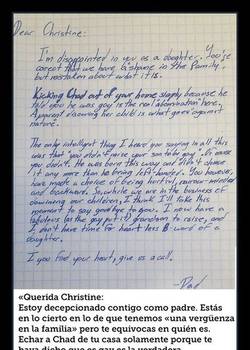 Dear Christine:
I'm disappointed in you as a daughter. You're
correct that we have a "shame in the family",
but mistaken about what it is.
Kicking Chad out of your home simply because he
told you he was gay is the real "abomination" here.
A parent disowning her child is what goes against
nature.
The only intelligent thing I heard you saying in all this
was that "you didn't raise your son to be gay". Of course
you didn't. He was born this way and didn't choose
it any more than he being left-handed. You however,
have made a choice of being hurtful, narrow-minded
and backward. So, while we are in the business of
disowning our children, I think I'll take this
moment to say goodbye to you. I now have a
fabulous (as the gay put it) grandson to raise, and
I don't have time for heart-less B-word of a
daughter.
If you find your heart, give us a call.
-Dad
«Querida Christine:
Estoy decepcionado contigo como padre. Estás
en lo cierto en lo de que tenemos «una vergüenza
en la familia» pero te equivocas en quién es.
Echar a Chad de tu casa solamente porque te
haya dicho que es gay es la verdadera